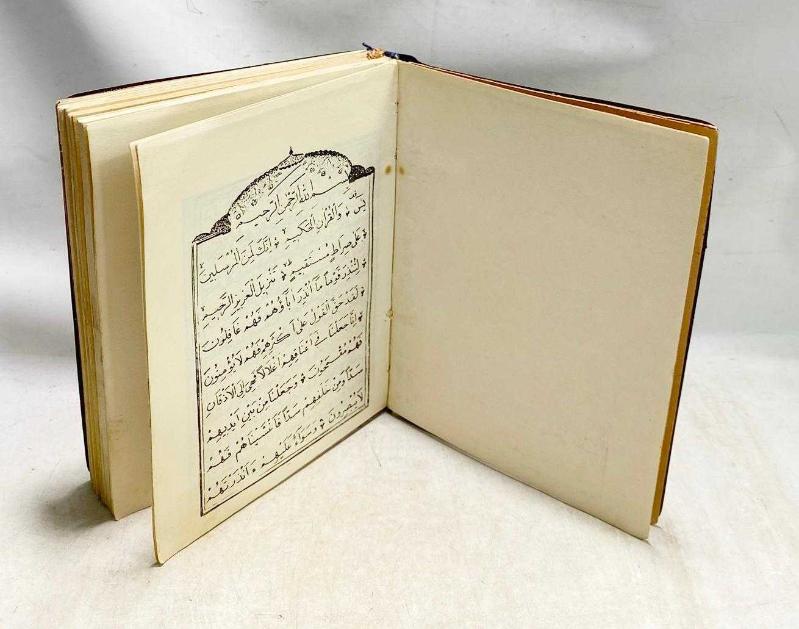 بسم الله الرحمن الرحيم
يس ۞ وَالْقُرْآنِ الْحَكِيمِ ۞ اِنَّكَ لَمِنَ الْمُرْسَلِينَ
عَلَى صِرَاطٍ مُسْتَقِيمٍ ۞ تَنْزِيلَ الْعَزِيزِ الرَّحِيمِ
۞ لِتُنْذِرَ قَوْمًا مَا اُنْذِرَ اٰبَاؤُهُمْ فَهُمْ غَافِلُونَ
۞ لَقَدْ حَقَّ الْقَوْلُ عَلَى اَكْثَرِهِمْ فَهُمْ لَا يُؤْمِنُونَ
۞ اِنَّا جَعَلْنَا فِي اَعْنَاقِهِمْ اَغْلَالًا فَهِيَ اِلَى الْاَذْقَانِ
فَهُمْ مُقْمَحُونَ ۞ وَجَعَلْنَا مِنْ بَيْنِ اَيْدِيهِمْ
سَدًّا وَمِنْ خَلْفِهِمْ سَدًّا فَاَغْشَيْنَاهُمْ فَهُمْ
لَا يُبْصِرُونَ ۞ وَسَوَاءٌ عَلَيْهِمْ ءَاَنْذَرْتَهُمْ